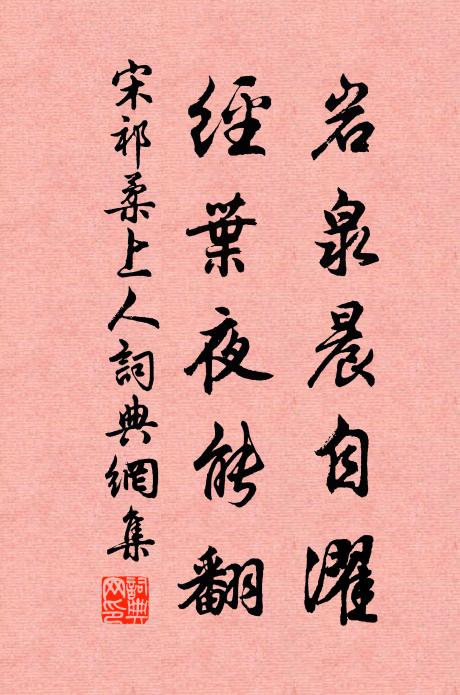 岩泉晨自濯
經葉夜能翻
宋祁柔上人詞典網集
詞典網印